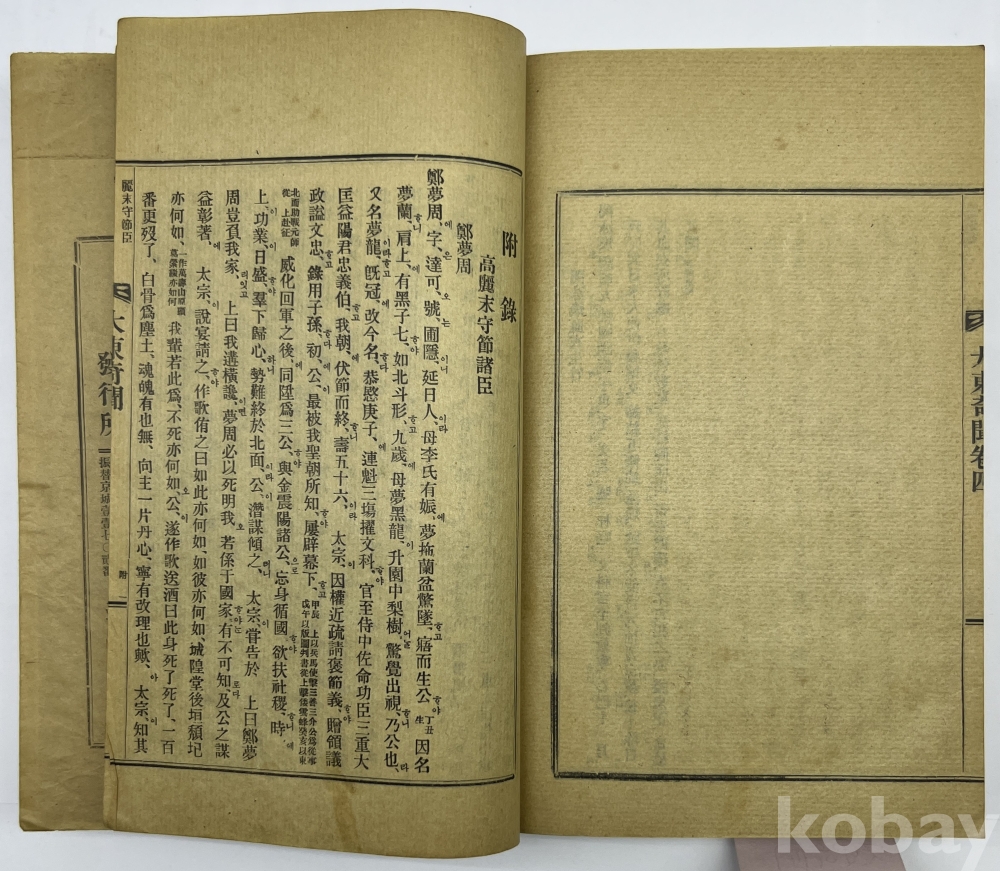 大東奇聞卷四
附錄
高麗末守節諸臣
鄭夢周
鄭夢周、字은達可오、號는圃隱이니、延日人이라、母李氏有娠에、夢抱蘭盆驚墜ᄒᆞ고、寤而生公ᄒᆞ야、丁丑生 因名
夢蘭ᄒᆞ니、肩上에、有黑子七ᄒᆞ야、如北斗形ᄒᆞ고、九歲에、母夢黑龍이、升園中梨樹어ᄂᆞᆯ、驚覺出視ᄒᆞ니、乃公也라、
又名夢龍이라ᄒᆞ고、旣冠에、改今名ᄒᆞ다、恭愍庚子에、連魁三塲擢文科ᄒᆞ야、官至侍中佐命功臣三重大
匡益陽君忠義伯ᄒᆞ고、我朝에、伏節而終ᄒᆞ니、壽五十六이라、太宗이、因權近疏請褒節義ᄒᆞ야、贈領議
政謚文忠ᄒᆞ고、錄用子孫ᄒᆞ다、初에、公이、最被我聖朝所知ᄒᆞ야、屢辟幕下ᄒᆞ고、甲辰 上以兵馬使擊三善三介公爲從事戊午以版圖判書從上擊倭雲峰癸亥以東
北面助戰元帥從 上赴征 威化回軍之後에、同陞爲三公ᄒᆞ야、與金震陽諸公으로、忘身循國ᄒᆞ야、欲扶社稷ᄒᆞ니、時에
上이、功業이、日盛ᄒᆞ야、羣下歸心ᄒᆞ니、勢難終於北面이라、公이、潛謀傾之러니、太宗이、甞告於 上曰鄭夢
周豈負我家릿고、上曰我遘橫讒이면、夢周必以死明我오、若係于國家ᄒᆞ야ᄂᆞᆫ、有不可知로다、及公之謀
益彰著에、太宗이、說宴請之ᄒᆞ야、作歌侑之曰如此亦何如、如彼亦何如、城隍堂後垣頹圮
亦何如、一作萬壽山煎藤葛縈績亦如何 我輩若此爲、不死亦何如오、公이、遂作歌送酒曰此身死了死了、一百
番更歿了、白骨爲塵土、魂魄有也無、向主一片丹心、寧有改理也歟아、太宗이、知其
麗末守節臣
大東奇聞
附 一
kobay